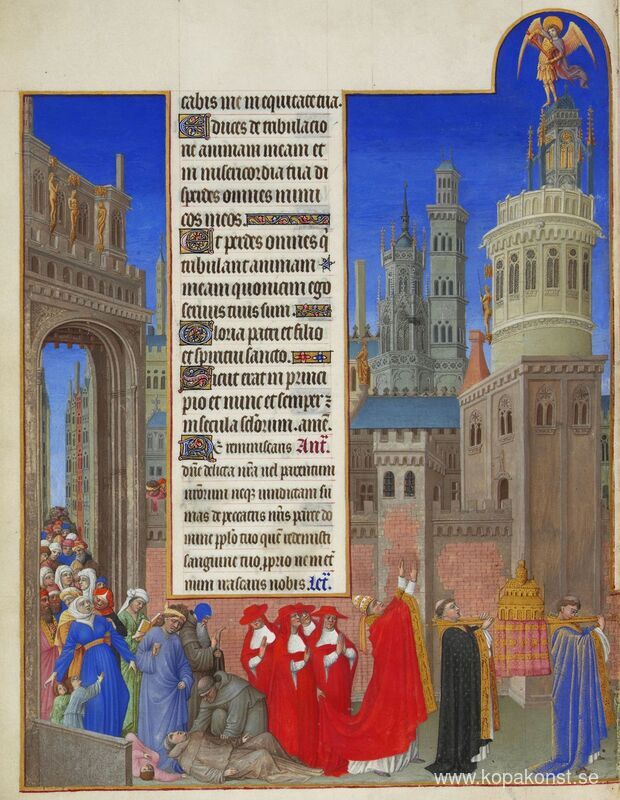 cabis me in equitate tua.
Educes de tribulacio
ne animam meam et
in misericordia tua di
sperdes omnes inimi
cos meos.
Et perdes omnes q̄
tribulant animam
meam quoniam ego
seruus tuus sum.
Gloria patri et filio
et spiritui sancto.
Sicut erat in princi
pio et nunc et semper ⁊
in secula sc̄lorum. amē.
Ne reminiscaris Ant̄.
dn̄e delicta nr̄a uel parentum
nr̄orum neq; uindictam su
mas de peccatis nr̄is parce do
mine pplo tuo quē redemisti
sanguine tuo, pprio ne in et̄
num nascaris nobis. Let̄.
www.kopakonst.se